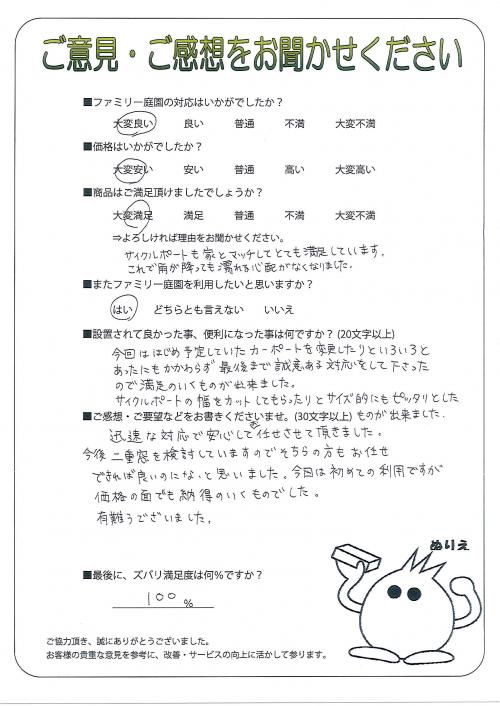 ご意見・ご感想をお聞かせください
■ファミリー庭園の対応はいかがでしたか？
大変良い　良い　普通　不満　大変不満
■価格はいかがでしたか？
大変安い　安い　普通　高い　大変高い
■商品はご満足頂けましたでしょうか？
大変満足　満足　普通　不満　大変不満
⇒よろしければ理由をお聞かせください。
サイクルポートも家とマッチしてとても満足しています。
これで雨が降っても濡れる心配がなくなりました.
■またファミリー庭園を利用したいと思いますか？
はい　どちらとも言えない　いいえ
■設置されて良かった事、便利になった事は何ですか？(20文字以上)
今回ははじめ予定していたカーポートを変更したりといろいろと
あったにもかかわらず最後まで誠意ある対応をして下さった
ので満足のいくものが出来ました。
サイクルポートの幅をカットしてもらったりとサイズ的にもピッタリとした
■ご感想・ご要望などをお書きくださいませ。(30文字以上) ものが出来ました.
迅速な対応で安心して任せさせて頂きました。
今後二重窓を検討していますのでそちらの方もお任せ
できれば良いのになと思いました。今回は初めての利用ですが
価格の面でも納得のいくものでした。
有難うございました。
ぬりえ
■最後に、ズバリ満足度は何％ですか？
100 %
ご協力頂き、誠にありがとうございました。
お客様の貴重な意見を参考に、改善・サービスの向上に活かして参ります。